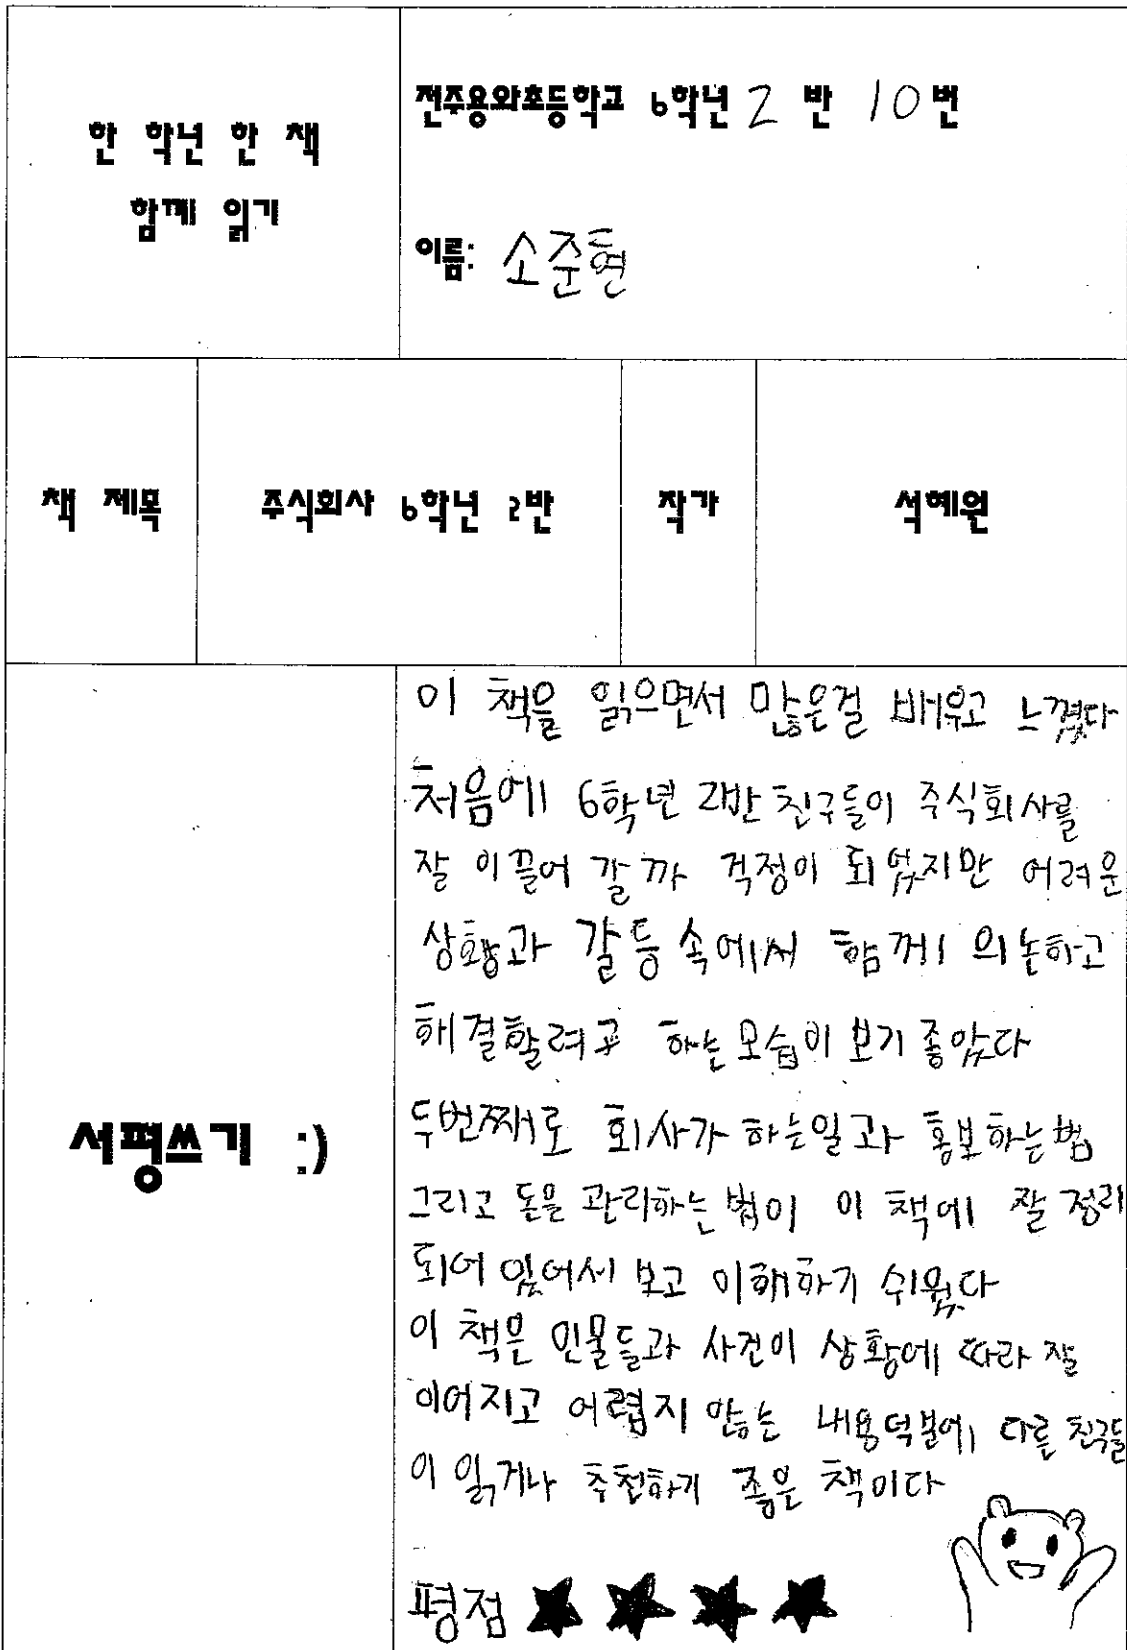 한 학년 한 책
함께 읽기
전주용와초등학교 6학년 2 반 10 번
이름: 소준현
책 제목
주식회사 6학년 2반
작가
석혜원
서평쓰기 :)
이 책을 읽으면서 많은걸 배우고 느꼈다
처음에 6학년 2반 친구들이 주식회사를
잘 이끌어 갈까 걱정이 되었지만 어려운
상황과 갈등 속에서 함께 의논하고
해결할려고 하는 모습이 보기 좋았다
두번째로 회사가 하는일과 홍보하는 법
그리고 돈을 관리하는 법이 이 책에 잘 정리
되어 있어서 보고 이해하기 쉬웠다
이 책은 인물들과 사건이 상황에 따라 잘
이어지고 어렵지 않는 내용덕분에 다른 친구들
이 읽거나 추천하기 좋은 책이다
평점 ★ ★ ★ ★